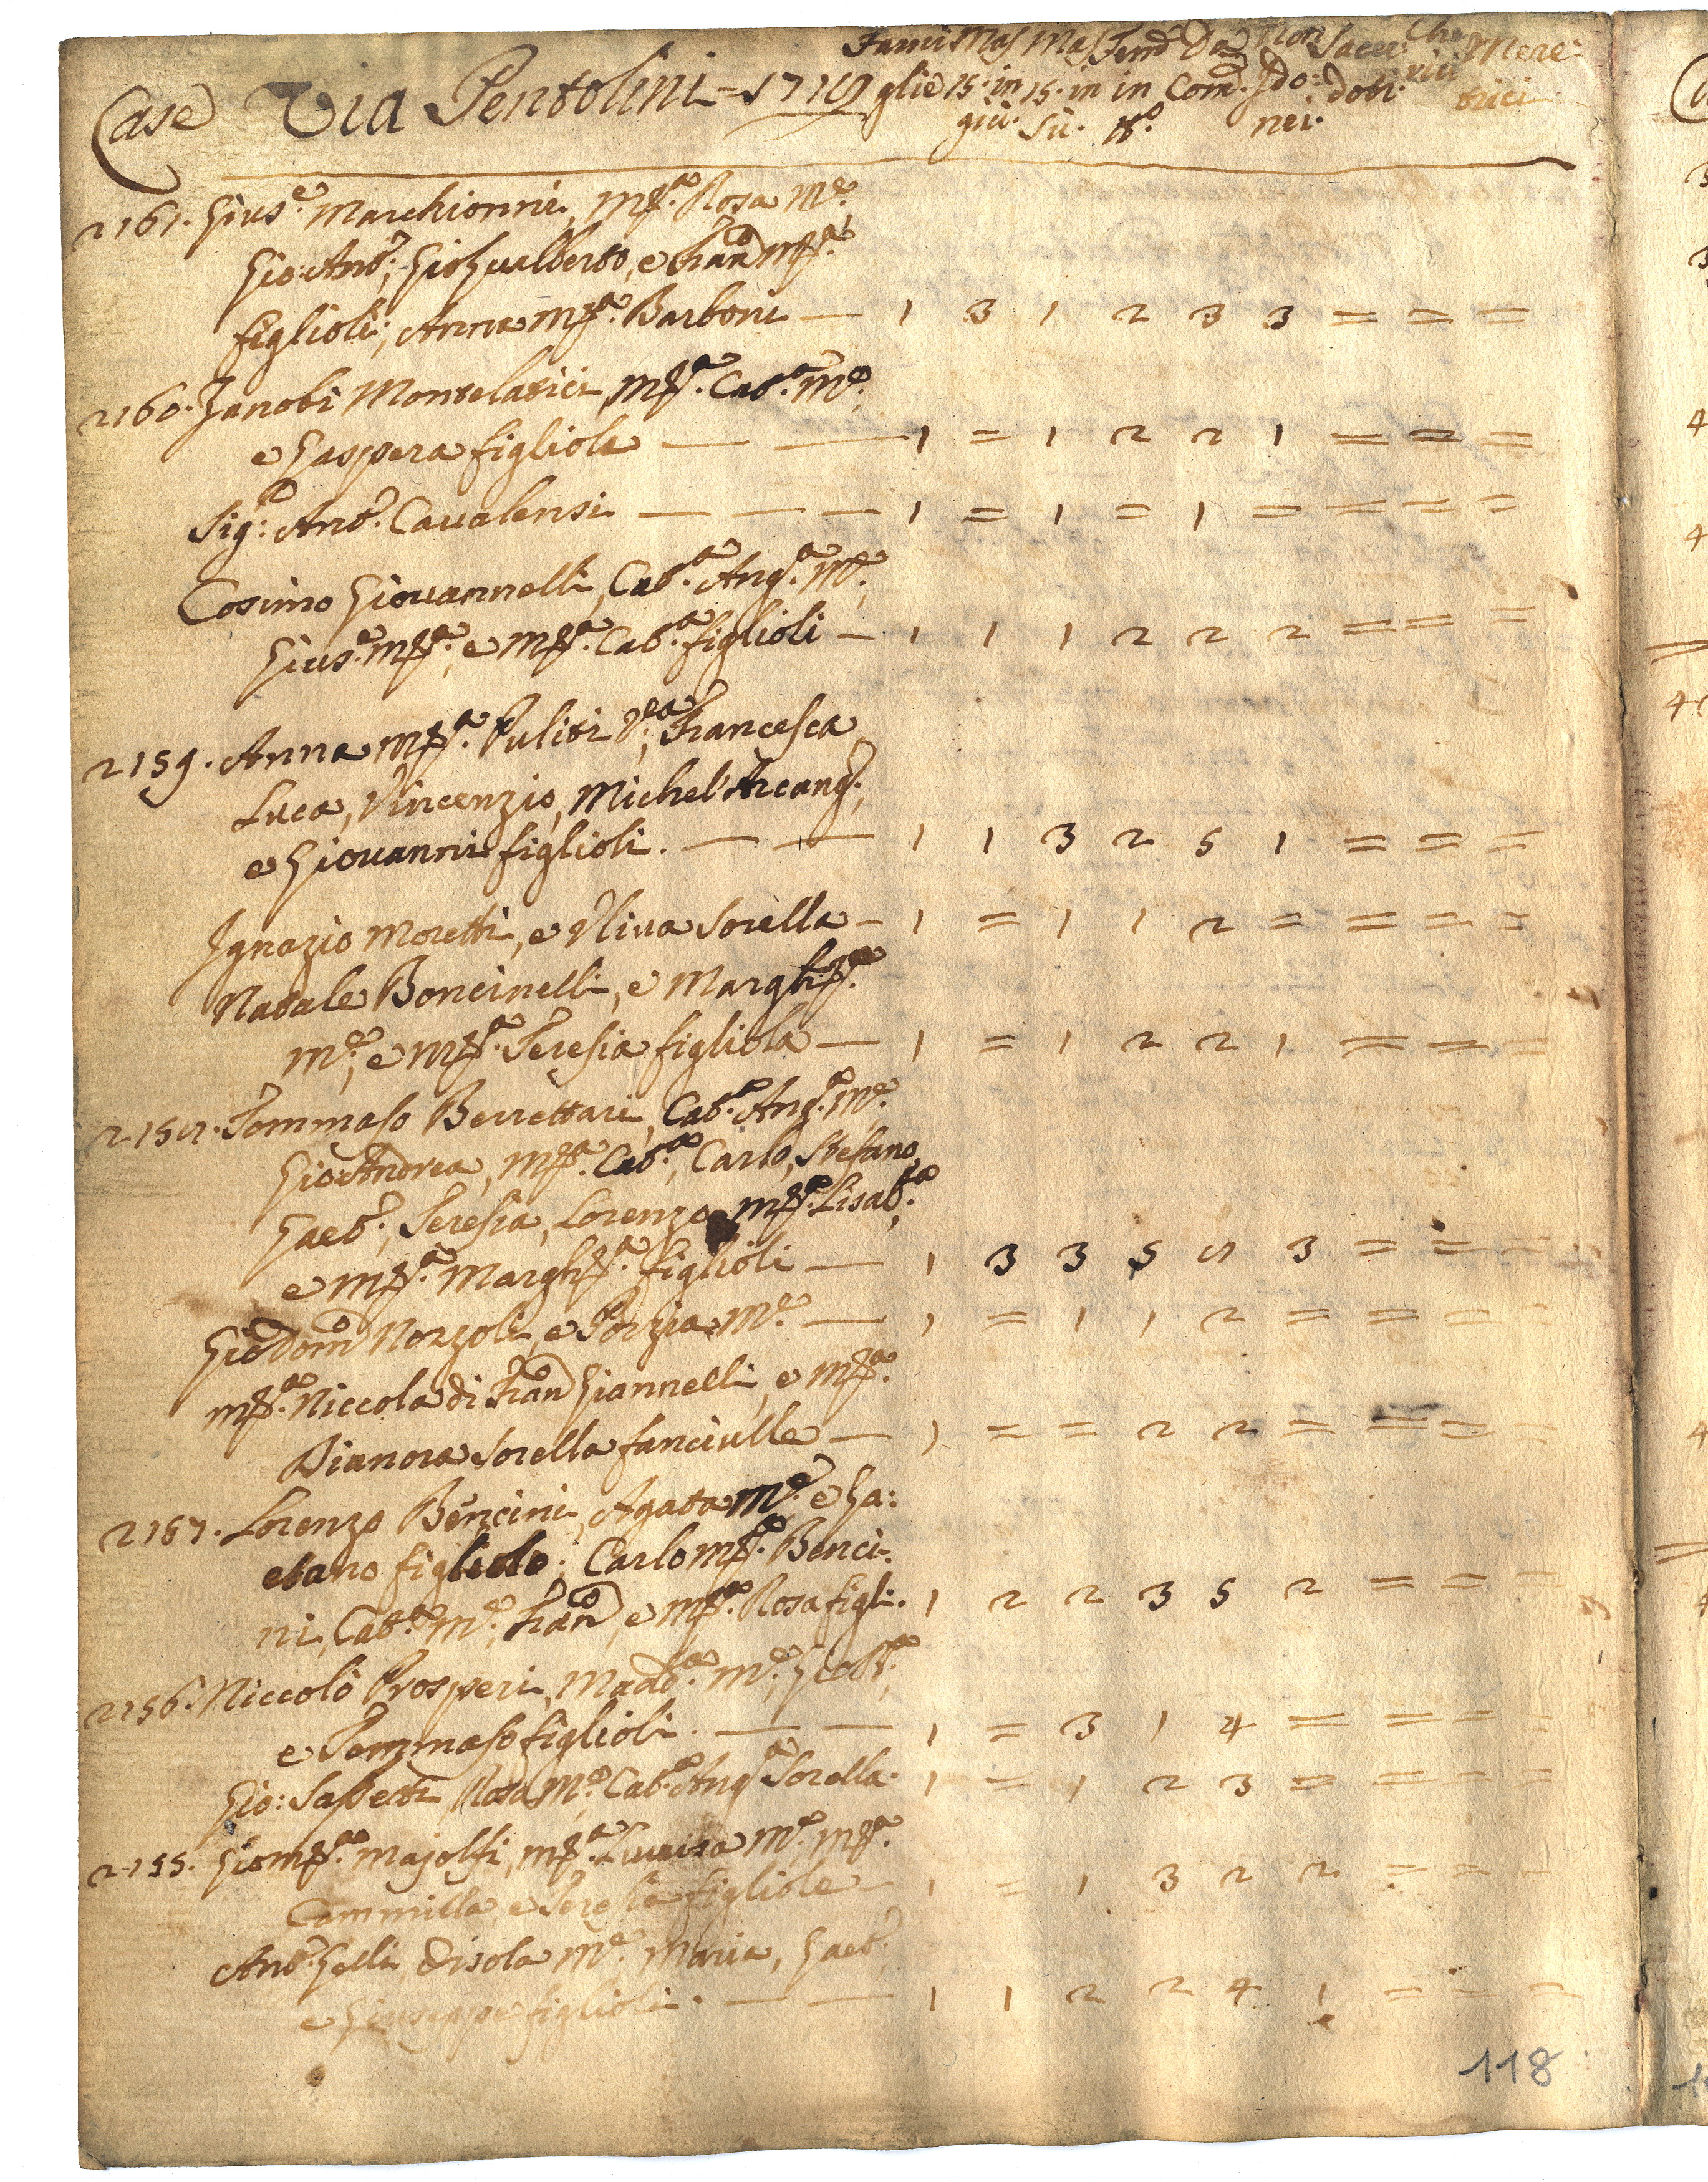 Case Via Pentolini - 1719 Fami Mas Mas Fem.e Da Non Sacer: Che Mere:
glie 15. in 15. in in Com.e Ido: doti. rici trici
giù. Sù. tt.o nei.
2161. Gius.e Marchionni, M.a Rosa M.e
Gio: Ant.o, Gio Gualberto, e Fran.co M.a
figlioli; Anna M.a Barboni — 1 3 1 2 3 3 = = =
2160. Zanobi Montelatici, M.a Cat.a M.e,
e Gaspera figliola — — 1 = 1 2 2 1 = = =
Sig: Ant.o Caualensi — — — 1 = 1 = 1 = = = =
Cosimo Giouannelli, Cat.a Ang.a M.e,
Gius.e M.a, e M.a Cat.a figlioli — 1 1 1 2 2 2 = = =
2159. Anna M.a Puliti V.a, Francesca
Luca, Vincenzio, Michel'Arcang.o,
e Giouanni figlioli. — — 1 1 3 2 5 1 = = =
Ignazio Moretti, e Vliua Sorella — 1 = 1 1 2 = = = =
Natale Boncinelli, e Margh.a
M.e, e M.a Teresia figliola — 1 = 1 2 2 1 = = =
2158. Tommaso Berrettari, Cat.a Ang.a M.e
Gio Andrea, M.a Cat.a, Carlo, Stefano,
Gaet.o, Teresia, Lorenzo, M.a Lisab.a,
e M.a Margh.a figlioli — 1 3 3 5 8 3 = = =
Gio Dom.co Norzoli, e Porzia M.e — 1 = 1 1 2 = = = =
M.a Niccola di Fran.co Giannelli, e M.a
Dianora Sorella fanciulle — 1 = = 2 2 = = = =
2157. Lorenzo Bencini, Agata M.e e Ga:
etano figliolo; Carlo M.a Benci:
ni, Cat.a M.e, Fran.co, e M.a Rosa figli. 1 2 2 3 5 2 = = =
2156. Niccolò Prosperi, Madd.a M.e, Gio B.a,
e Tommaso figlioli. — — 1 = 3 1 4 = = = =
Gio: Sassetti, Rosa M.e, Cat.a Ang.a Sorella. 1 = 1 2 3 = = = =
2155. Gio M.a Majolfi, M.a Luuisa M.e M.a
Cammilla, e Teresia figliole — 1 = 1 3 2 2 = = =
Ant.o Gelli, Orsola M.e Maria, Gaet.o
e Giuseppe figlioli. — — 1 1 2 2 4 1 = = =
118